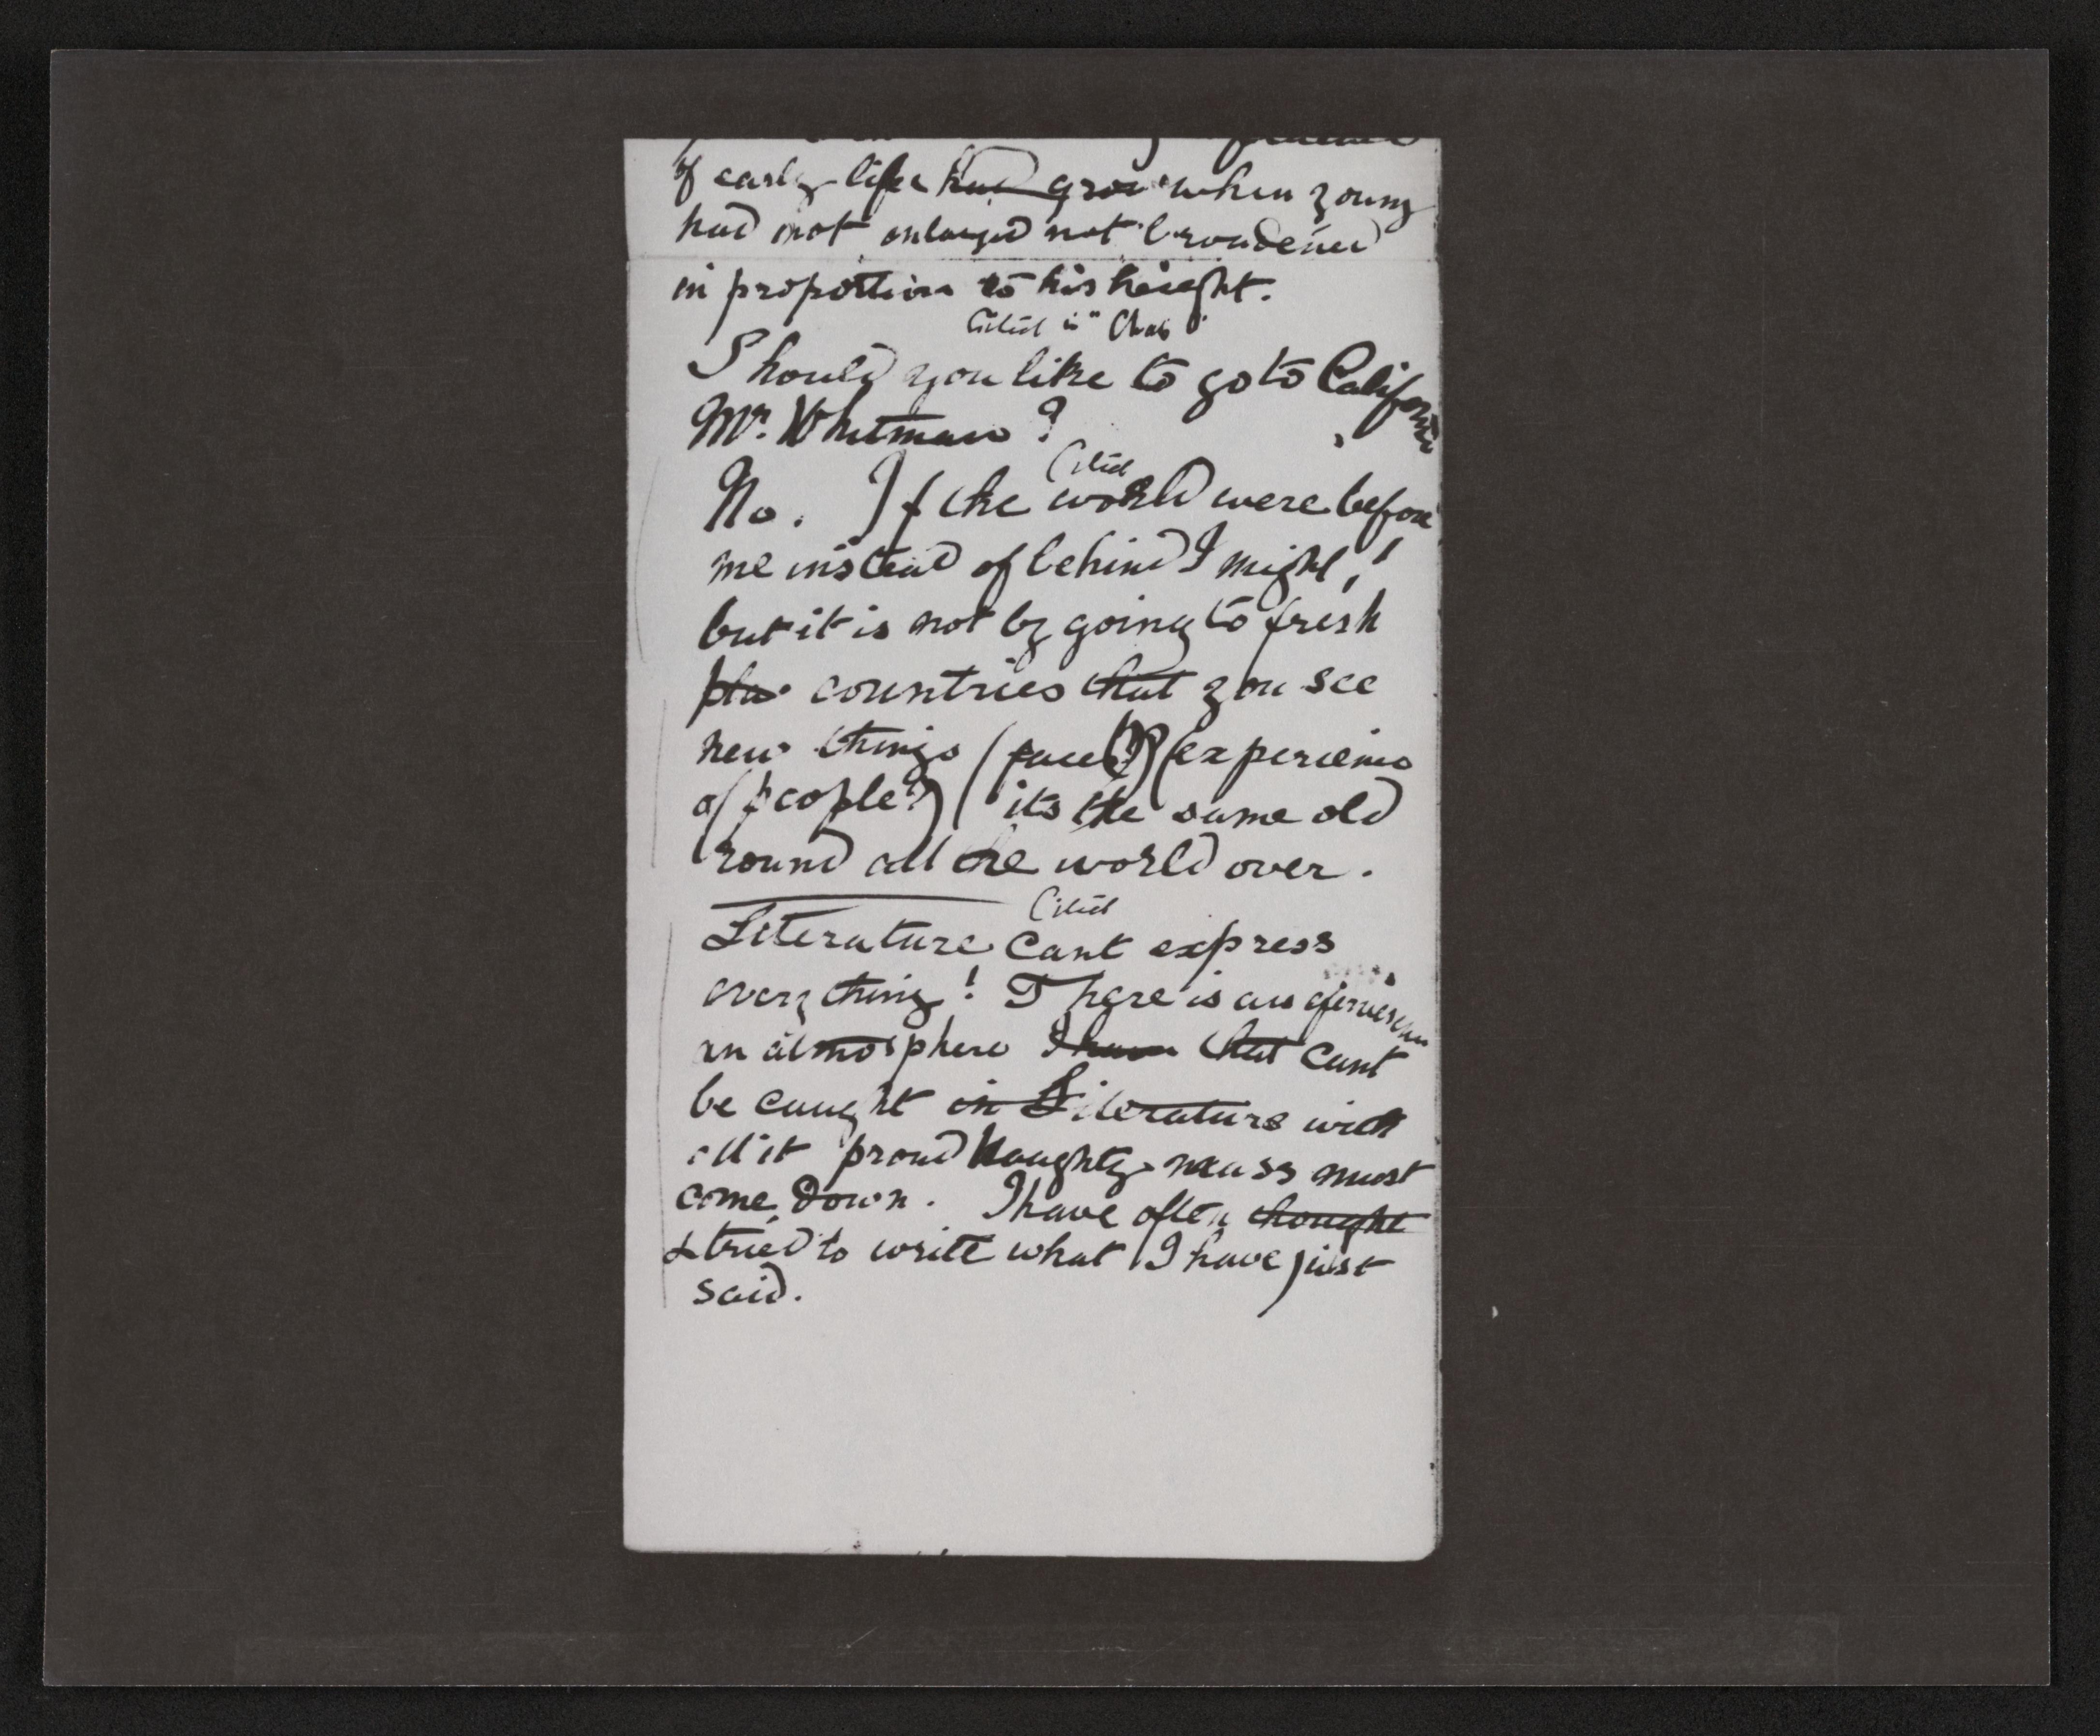 of early life had grow when young
had not enlarged not broadened
in proportion to his height.
Cited in "Chas"
Should you like to go to California
Mr. Whitman?
Cited
No. If the world were before
me instead of behind I might,!
but it is not by going to fresh
pla countries that you see
new things (faces?) (experience
of people?) its the same old
round all the world over.
Cited
Literature cant express
everything! There is an
an atmosphere that cant
be caught in Literature with
all it proud haughtyness must
come down. I have often thought
& tried to write what I have just
said.